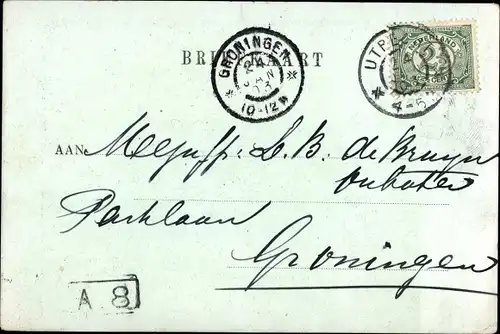 BRIEFKAART
GRONINGEN
24
JAN
03
10-12V
UTRE
4-5
NEDERLAND
2½
AAN Mejuff: L. B. de Bruyn
Parklaan
Groningen
A 8